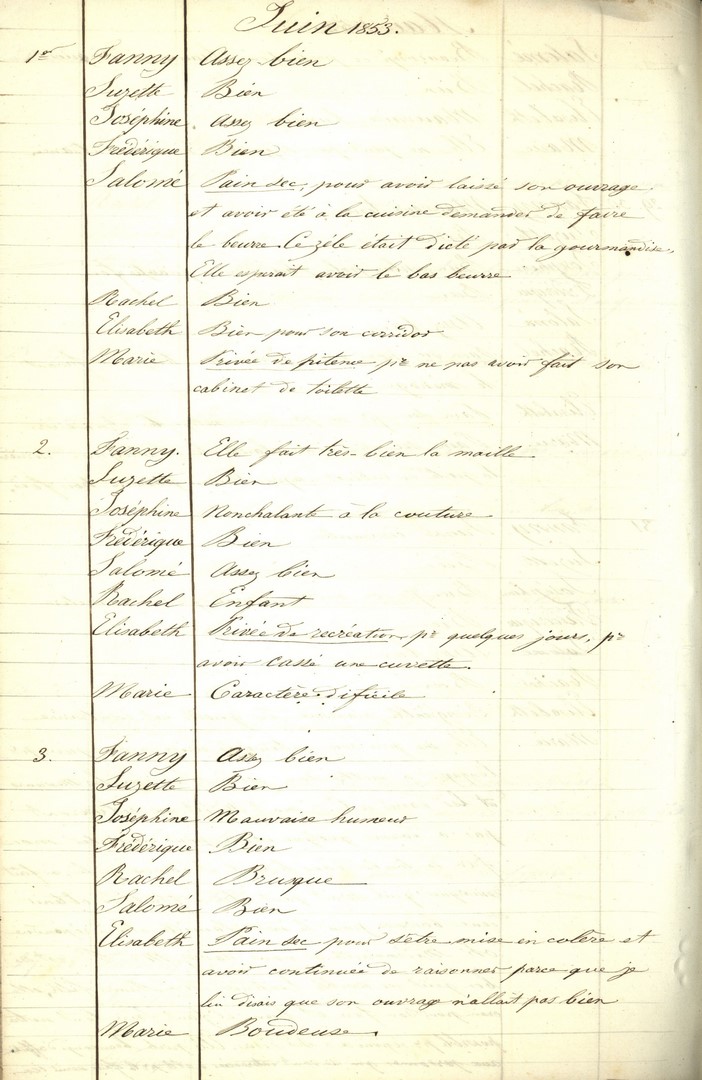 Juin 1853.
1er Fanny Assez bien
Suzette Bien
Joséphine Assez bien
Frédérique Bien
Salomé Pain sec, pour avoir laissé son ouvrage
et avoir été à la cuisine demander de faire
le beurre. Ce zéle était dicté par la gourmandise,
Elle esperait avoir le bas beurre
Rachel Bien
Elisabeth Bien pour son corridor
Marie Privée de pitence pr ne pas avoir fait son
cabinet de toilette
2. Fanny. Elle fait très-bien la maille
Suzette Bien
Joséphine Nonchalante à la couture
Frédérique Bien
Salomé Assez bien
Rachel Enfant
Elisabeth Privée de recréation pr quelques jours, pr
avoir cassé une cuvette.
Marie Caractère dificile
3. Fanny Assez bien
Suzette Bien
Joséphine Mauvaise humeur
Frédérique Bien
Rachel Brusque
Salomé Bien
Elisabeth Pain sec pour s'être mise en colère et
avoir continuée de raisonner parce que je
lui disais que son ouvrage n'allait pas bien
Marie Boudeuse.